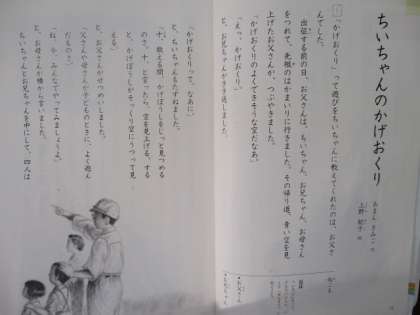 ちいちゃんのかげおくり
あまん きみこ 作
上野 紀子 絵
「かげおくり」って遊びをちいちゃんに教えてくれたのは、お父さ
んでした。
出征する前の日、お父さんは、ちいちゃん、お兄ちゃん、お母さん
をつれて、先祖のはかまいりに行きました。その帰り道、青い空を見
上げたお父さんが、つぶやきました。
「かげおくりのよくできそうな空だなあ。」
「えっ、かげおくり。」
と、お兄ちゃんがきき返しました。
「かげおくりって、なあに。」
と、ちいちゃんもたずねました。
「十、数える間、かげぼうしをじっと見つめる
のさ。十、と言ったら、空を見上げる。する
と、かげぼうしがそっくり空にうつって見
える。」
と、お父さんがせつめいしました。
「父さんや母さんが子どものときに、よく遊ん
だものさ。」
「ね。今、みんなでやってみましょうよ。」
と、お母さんが横から言いました。
ちいちゃんとお兄ちゃんを中にして、四人は